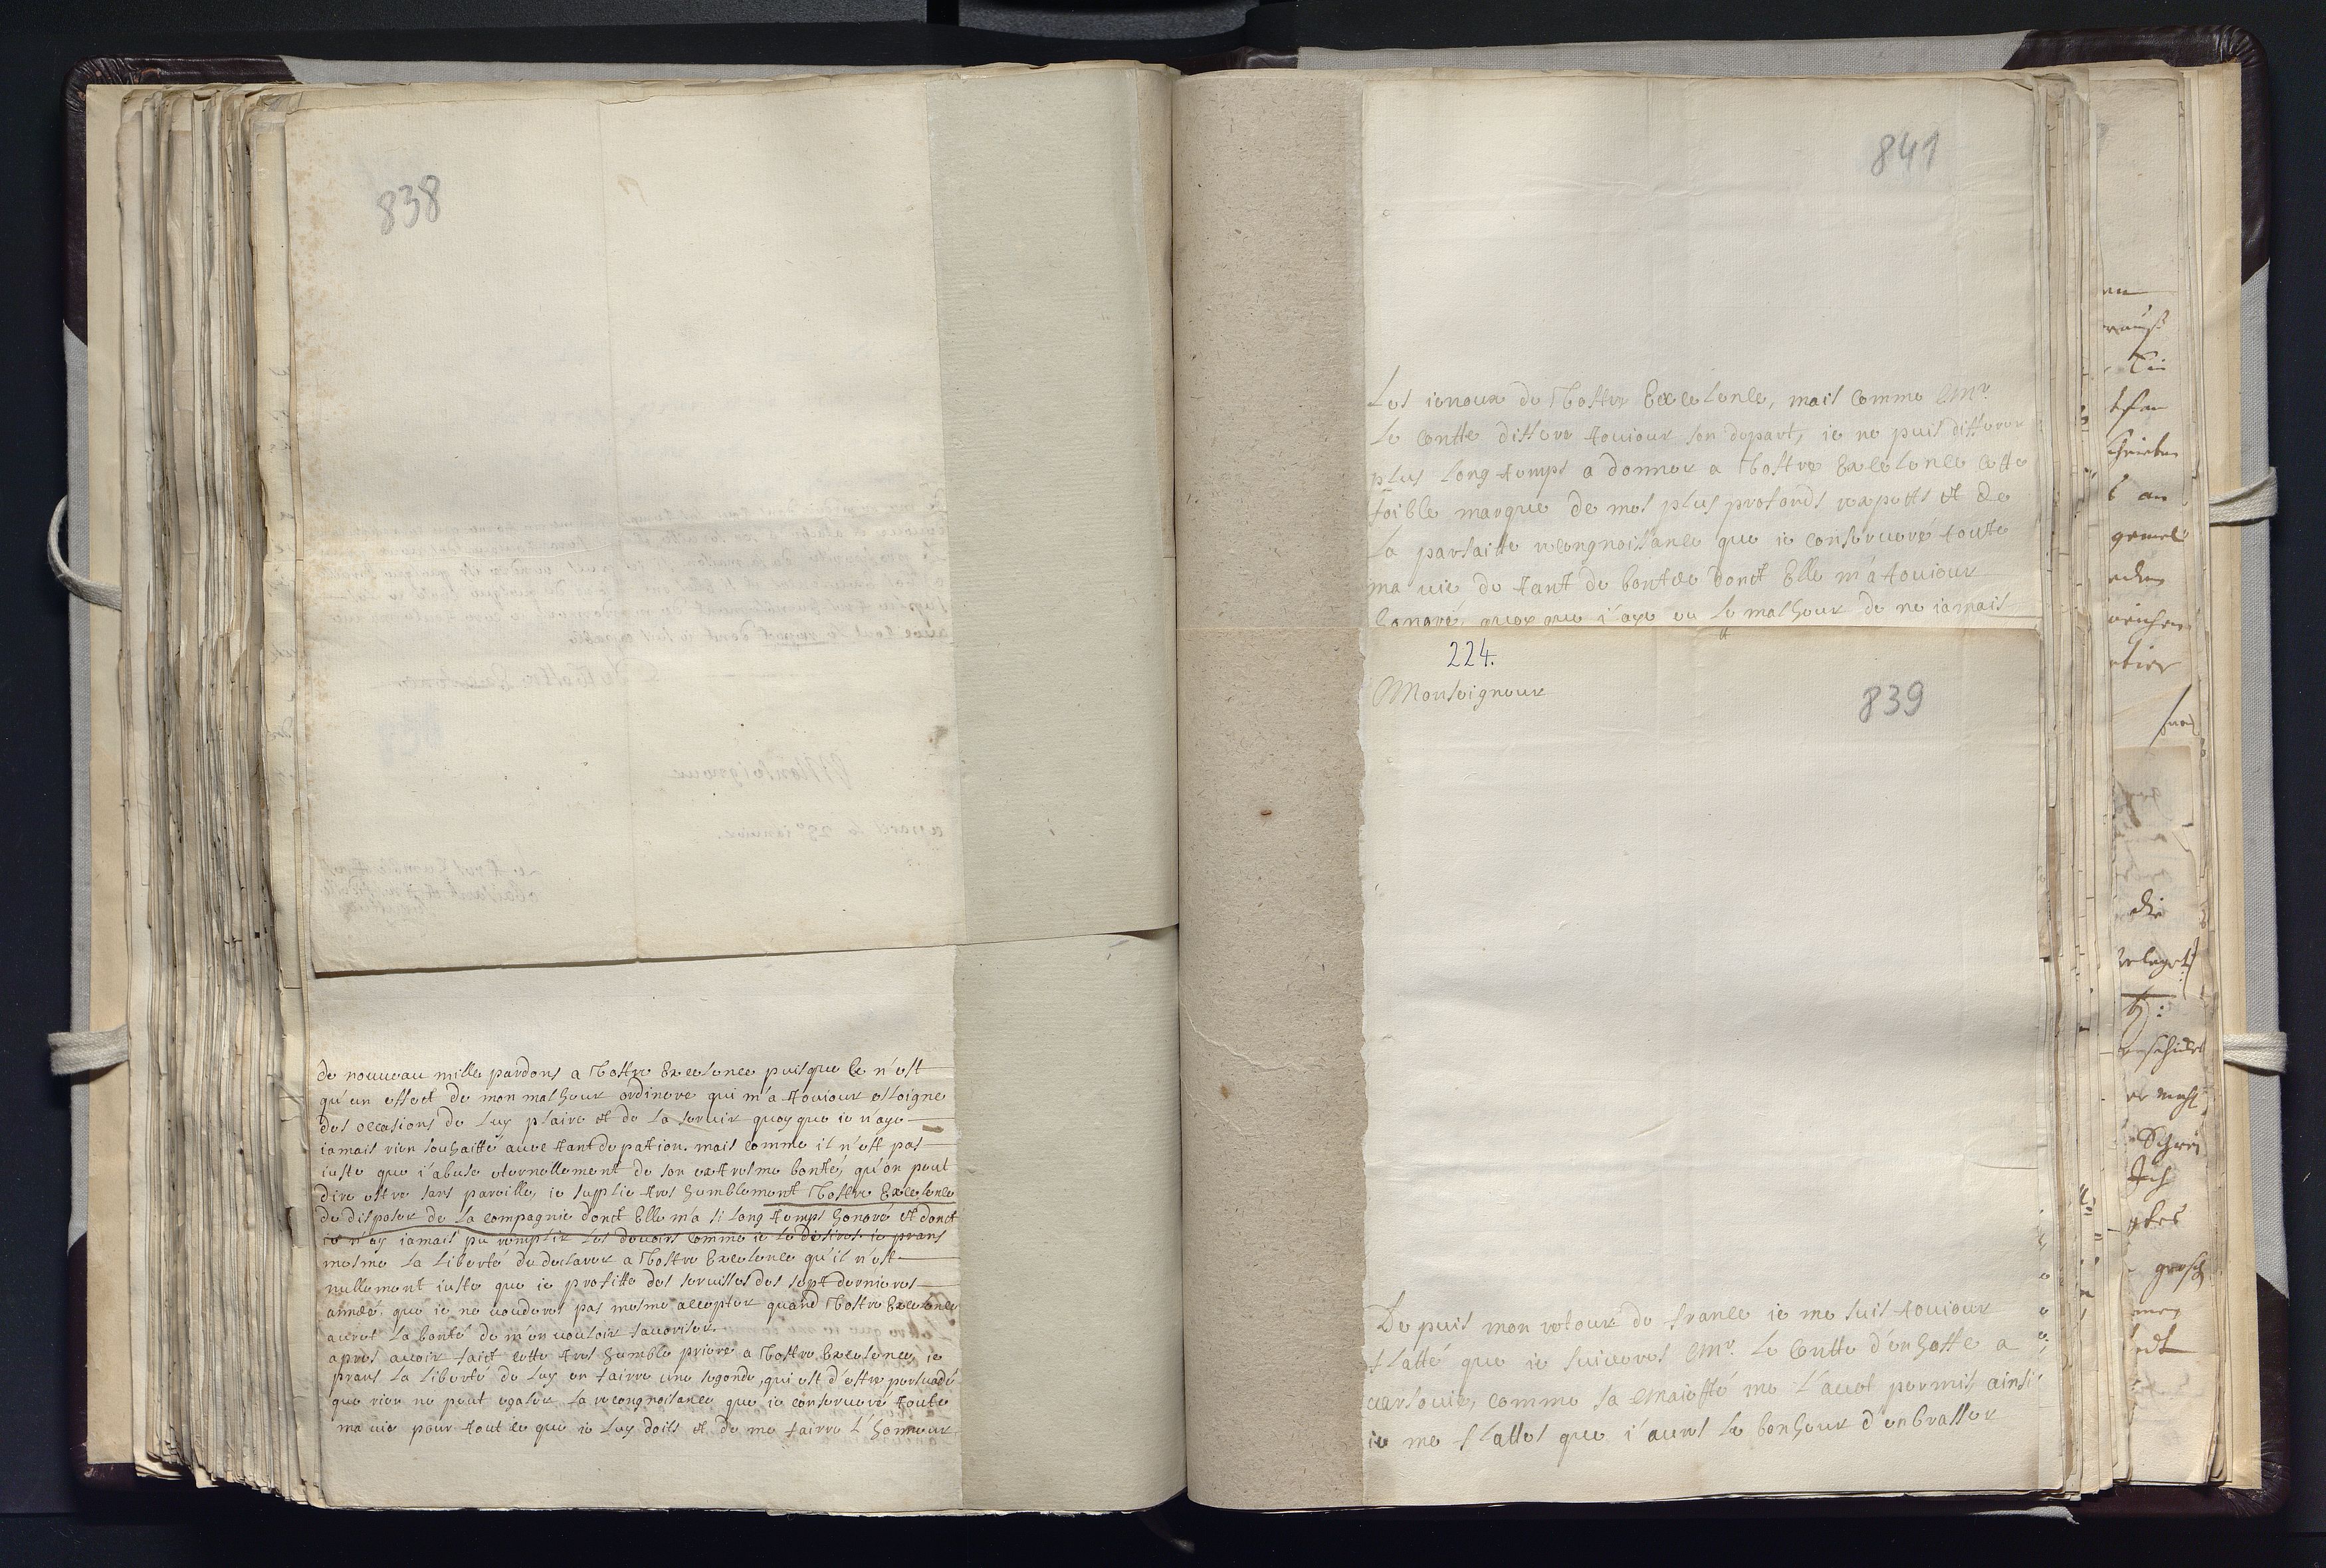 838
de nouueau mille pardons a Vostre Excelence puisque ce n'est
qu'un effect de mon malheur ordinere qui m'a touiour esloigne
des occasions de luy plaire et de la seruir quoy que ie n'aye
iamais rien souhaitté auec tant de pation. mais comme il n'est pas
iuste que i'abuse eternellement de son extresme bonté, qu'on peut
dire estre sans pareille, ie suplie tres humblement Vostre Excelence
de disposer de la compagnie donct Elle m'a si long temps honoré et donct
ie n'ay iamais pu remplir les deuoirs comme ie le desires. ie prans
mesme la liberté de declarer a Vostre Excelence qu'il n'est
nullement iuste que ie profitte des seruisses des sept dernieres
année, que ie ne voudores pas mesme accepter quand Vostre Excelence
auret la bonté de m'en vouloir fauoriser.
apres auoir faict cette tres humble priere a Vostre Excelence, ie
prans la liberté de luy en fairre une segonde, qui est d'estre persuadé
que rien ne peut egaler la recongnoisance que ie conserueré toute
ma uie pour tout ce que ie luy doits et de me fairre l'honneur
841
Les ienoux de Vostre Excelence, mais comme Mr.
le contte differe touiour son depart, ie ne puis differer
plus long temps a donner a Vostre Excelence cette
foible marque de mes plus profonds respects et de
la parfaitte recongnoissance que ie conserueré toute
ma uie de tant de bontée donct Elle m'a touiour
honoré, quoy que i'aye eu le malheur de ne iamais
224.
Monseigneur
839
De puis mon retour de france ie me suis touiour
flatté que ie suiueres Mr. le Contte d'enhoffe a
uarsouie, comme sa Maiesté me l'auet permis ainsi
ie me flattes que i'aures le bonheur d'enbrasser